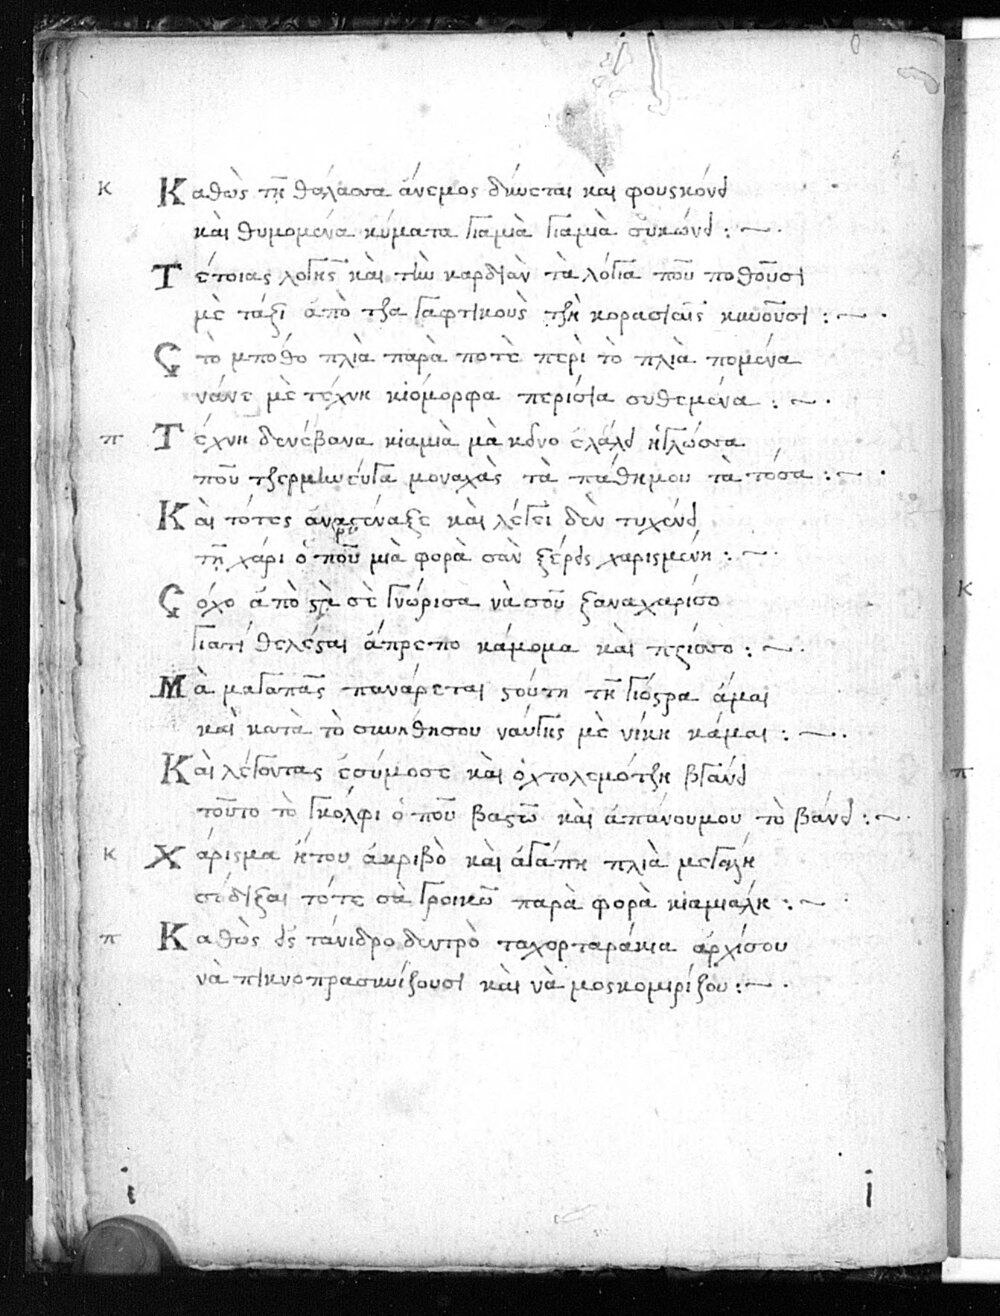 κ Καθὼς τῆ θάλασσα ἄνεμος δίνεται καὶ φουσκόνει
καὶ θυμομένα κύματα γιαμιὰ γιαμιὰ συκώνει :~.
Τέτοιας λογῆς καὶ τὴν καρδιὰν τὰ λόγια ποῦ ποθοῦσι
μὲ τάξι ἀπὸ τζα γαφτικοὺς τζὴ κορασιαῖς κινοῦσι :~.
Στὸ μποθο πλιὰ παρὰ ποτὲ περὶ τὸ πλιὰ πομένα
νάνε μὲ τέχνη κιόμορφα περίσια συθεμένα :~.
π Τέχνη δενέβανα κιαμιὰ μὰ κεῖνο ἐλάλει ἡγλώσσα
ποῦ τζερμηνέυγα μοναχὰς τὰ πάθημου τὰ τόσα :~.
Καὶ τότες ἀναστέναξε καὶ λέγει δὲν τυχένει
τῆ χάρι ὁποῦ μιὰ φορὰ σὰν ξέρεις χαρισμένη :~.
Στόχο ἀπὸ στὰ σὲ γνώρισα νὰ σοῦ ξαναχαρίσο
γιατὶ θελέσται ἄπρεπο κάμομα καὶ περίσσο :~.
Μὰ μαγαπᾶς πανάρεται στούτη τῆ γιόστρα ἄμαι
καὶ κατὰ τὸ συνήθησου νάυγης μὲ νίκη κάμαι :~.
Καὶ λέγοντας ἐσύμοσε καὶ ὀχτολεμότζη βγάνει
τοῦτο τὸ γκόλφι ὁποῦ βαστῶ καὶ ἀπάνουμου τὸ βάνει :~.
κ Χάρισμα ἤτου ἀκριβὸ καὶ ἀγάπη πλιὰ μεγάλη
σὲ δίξαι τότε σὰ γροικῶ παρὰ φορὰ κιαμιάλη :~.
π Καθὼς εἰς τάνιδρο δεντρὸ ταχορταράκια ἀρχίσου
νὰ πικνοπρασινίζουσι καὶ νὰ μοσκομιρίζου :~.